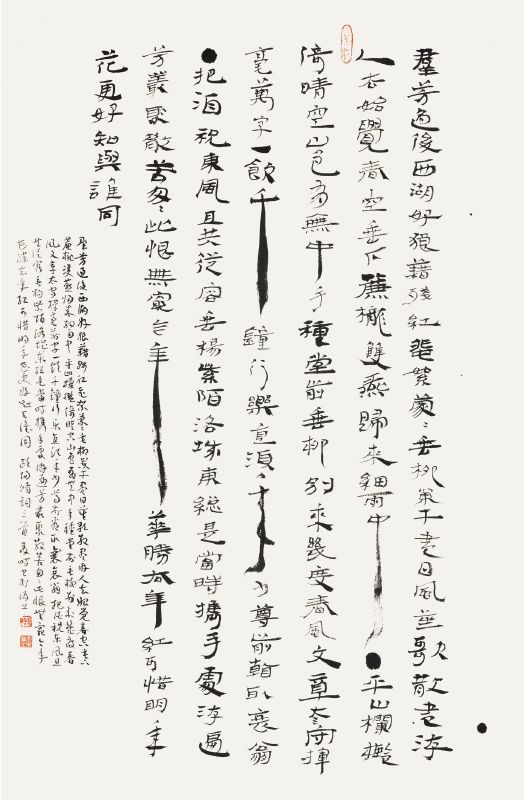 羣芳過後西湖好狼藉殘紅飛絮濛〻垂柳闌干盡日風笙歌散盡游
人去始覺春空垂下簾櫳雙燕歸來細雨中●平山欄檻
倚晴空山色有無中手種堂前垂柳別來幾度春風文章太守揮
毫萬字一飲千鐘行樂直須年少尊前看取衰翁
●把酒祝東風且共從容垂楊紫陌洛城東總是當時攜手處游遍
芳叢聚散苦匆〻此恨無窮今年華勝去年紅可惜明年
花更好知與誰同
羣芳過後西湖好狼藉殘紅飛絮濛〻垂柳闌干盡日風笙歌散盡游人去始覺春空垂下
簾櫳雙燕歸來細雨中平山欄檻倚晴空山色有無中手種堂前垂柳別來幾度春
風文章太守揮毫萬字一飲千鐘行樂直須年少尊前看取衰翁把酒祝東風且
共從容垂楊紫陌洛城東總是當時攜手處游遍芳叢聚散苦匆〻此恨無窮今年
花勝去年紅可惜明年花更好知與誰同歐陽修詞三首